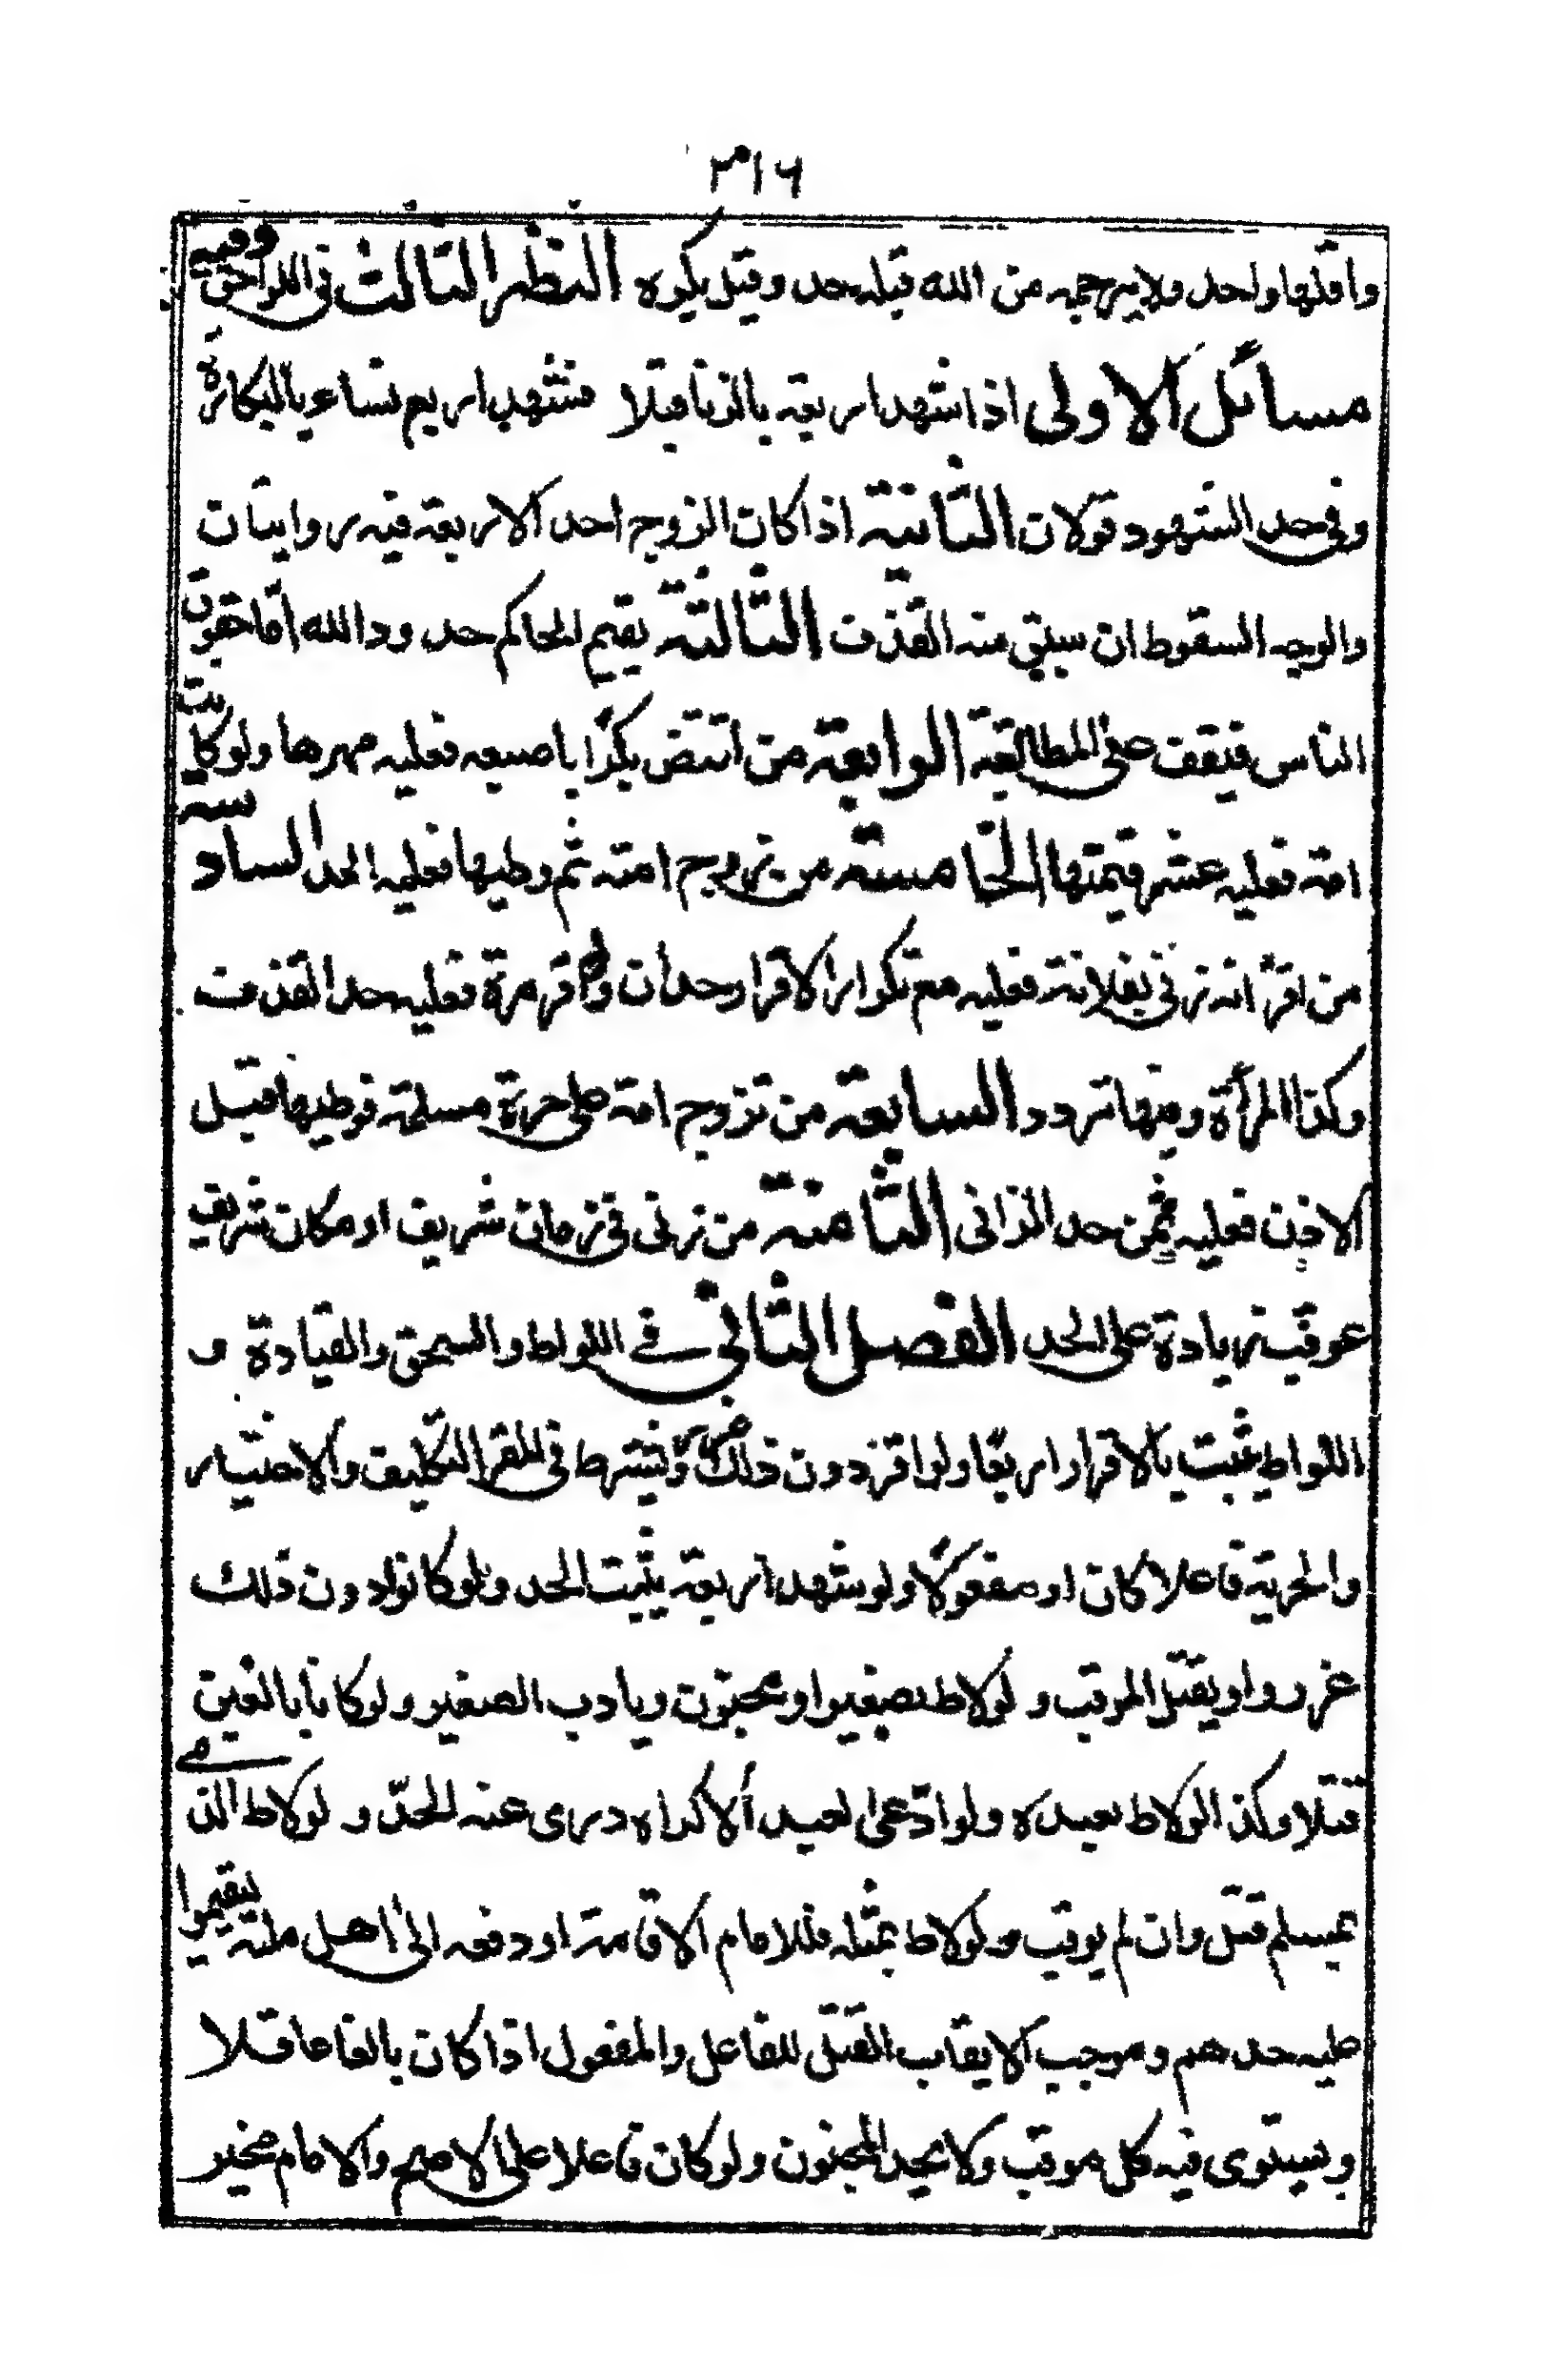 ٣١٦
واقلها واحد ولا يرجمه من الله قبله حد وقيل يكره النظر الثالث في اللواحق وفيه
مسائل الاولى اذا شهد اربعة بالزنا قبلا فشهد اربع نساء بالبكارة
وفي حد الشهود قولان الثانية اذا كان الزوج احد الاربعة فيه روايتان
والوجه السقوط ان سبق منه القذف الثالثة يقيم الحاكم حدود الله اما حقوق
الناس فيقف على المطالبة الرابعة من افتض بكرا باصبعه فعليه مهرها ولو كانت
امة فعليه عشر قيمتها الخامسة من زوج امته ثم وطيها فعليه الحد السادسة
من اقر انه زنى بفلانة فعليه مع تكرار الاقرار حدان ولو اقر مرة فعليه حد القذف
وكذا المرأة وفيها تردد السابعة من تزوج امة على حرة مسلمة فوطيها قبل
الاذن فعليه ثمن حد الزانى الثامنة من زنى في زمان شريف او مكان شريف
عوقب زيادة على الحد الفصل الثانى في اللواط والسحق والقيادة و
اللواط يثبت بالاقرار اربعا ولو اقر دون ذلك عزر ويشترط في المقر التكليف والاختيار
والحرية فاعلا كان او مفعولا ولو شهد اربعة يثبت الحد ولو كانوا دون ذلك
عزروا ويقتل الموقب ولو لاط بصغير او بمجنون ويادب الصغير ولو كانا بالغين
قتلا وكذا لو لاط بعبده ولو ادعى العبد الاكراه درى عنه الحد ولو لاط الذمي
بمسلم قتل وان لم يوقب ولو لاط بمثله فللامام الاقامة او دفعه الى اهل ملته ليقيموا
عليه حدهم وموجب الايقاب القتل للفاعل والمفعول اذا كان بالغا عاقلا
ويستوى فيه كل موقب ولا يحد المجنون ولو كان فاعلا على الاصح والامام مخير